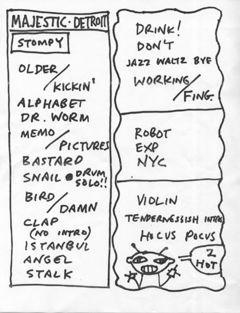 MAJESTIC · DETROIT
STOMPY
OLDER /
KICKIN'
ALPHABET
DR. WORM
MEMO /
PICTURES
BASTARD
SNAIL • DRUM SOLO!!
BIRD /
DAMN
CLAP
(NO INTRO)
ISTANBUL
ANGEL
STALK
DRINK!
DON'T
JAZZ WALTZ BYE
WORKING /
FING.
ROBOT
EXP
NYC
VIOLIN
TENDERNESSISH INTRO
HOCUS POCUS
2 HOT